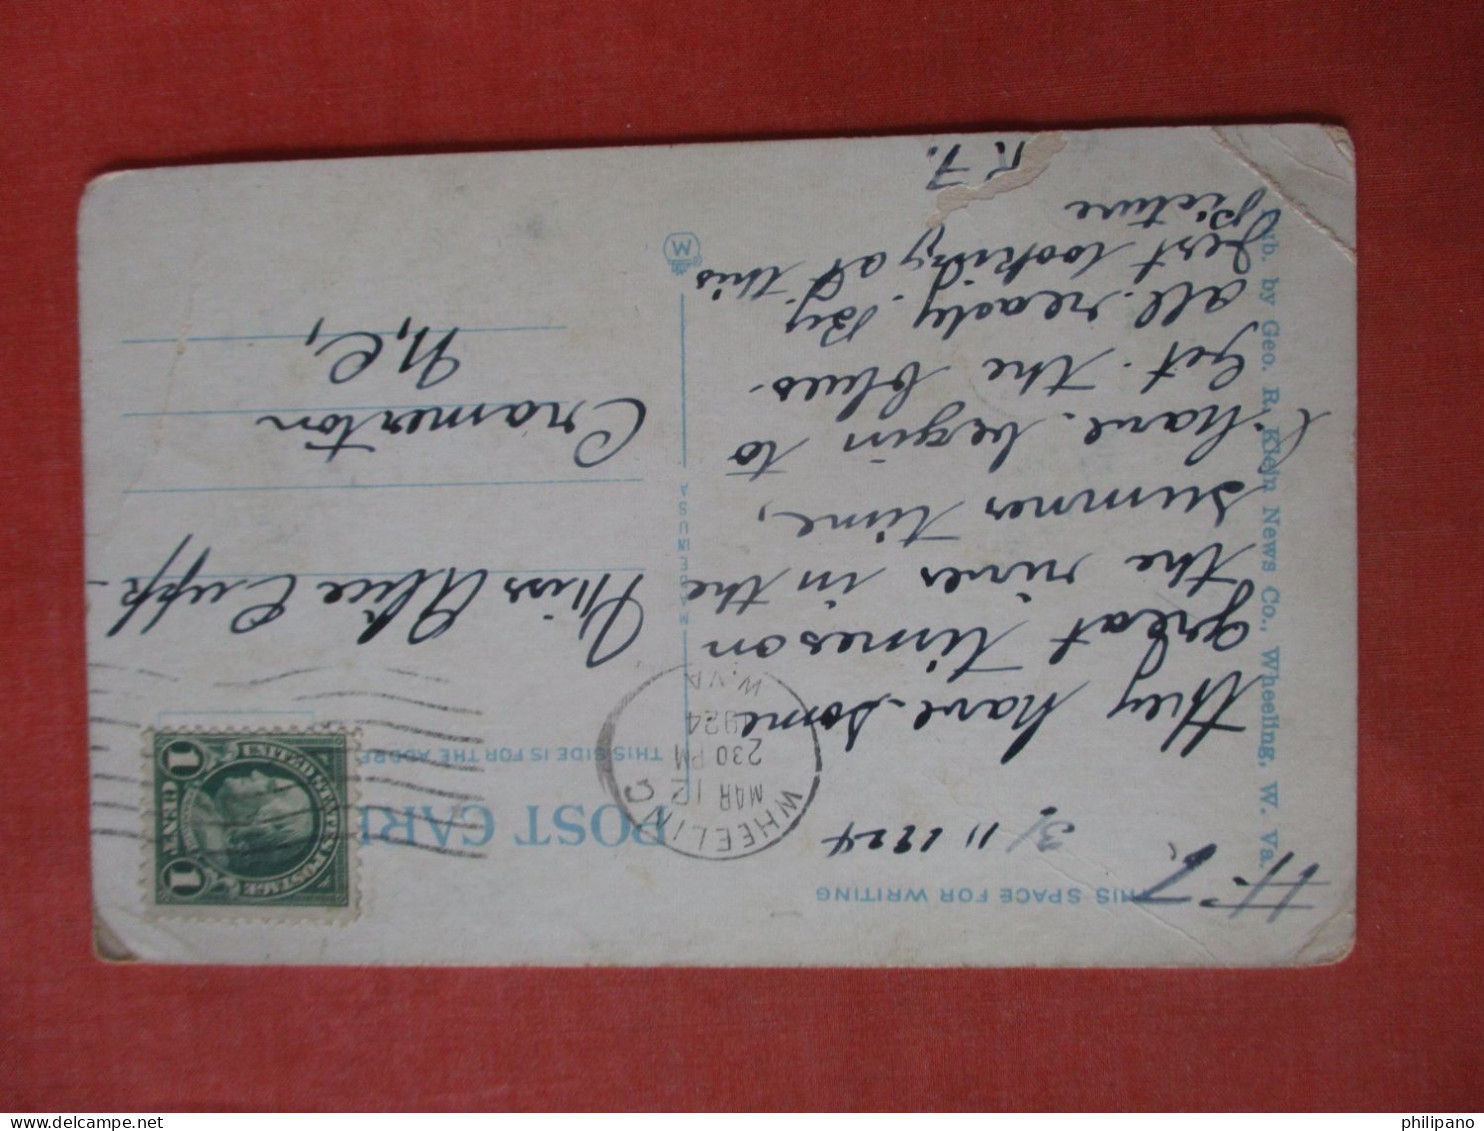 THIS SPACE FOR WRITING
H. T.
3/11 1924
they have some
great times on
the river in the
summer time,
I have begin to
get the blues.
all ready By
jest looking at this
picture
R. F.
Pub. by Geo. R. Klein News Co., Wheeling, W. Va.
POST CARD
THIS SIDE IS FOR THE ADDRE
WHEELING
MAR 12
230 PM
1924
W.VA.
UNITED STATES POSTAGE
1 CENT 1
MADE IN USA
Miss Alice Cupp
Cramerton
N.C,
philipano